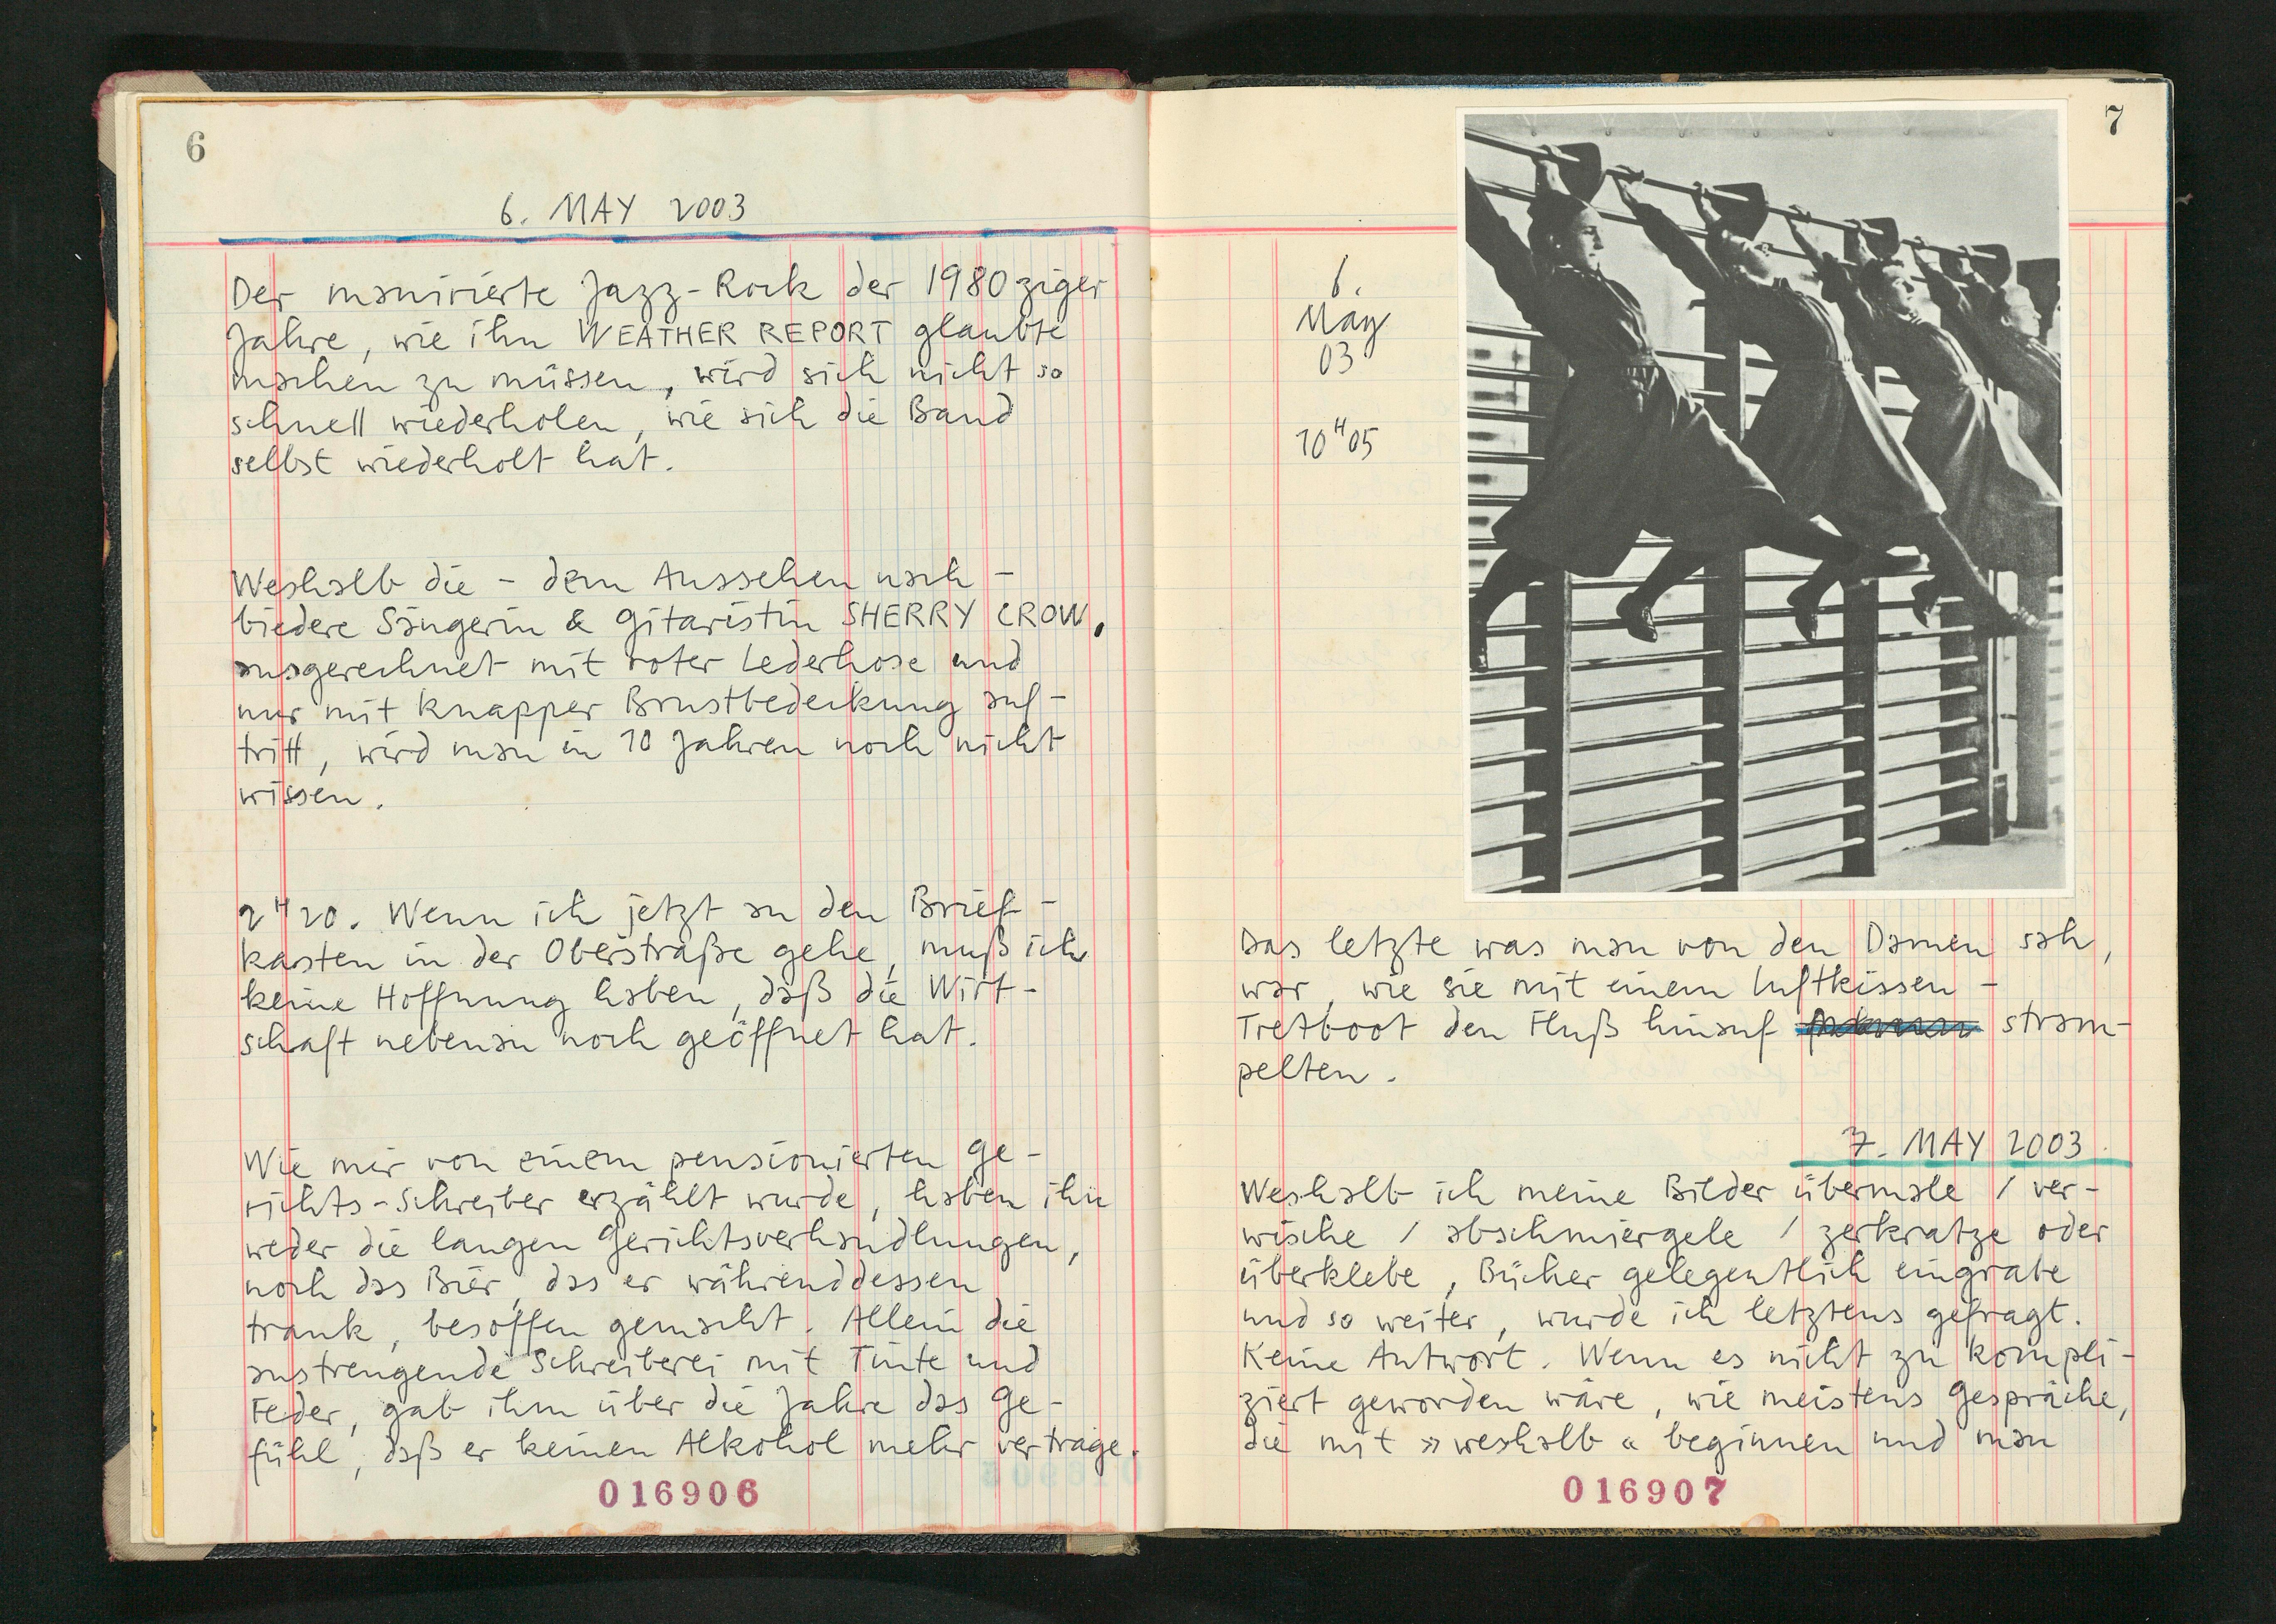 6
6. MAY 2003
Der manirierte Jazz-Rock der 1980ziger
Jahre, wie ihn WEATHER REPORT glaubte
machen zu müssen, wird sich nicht so
schnell wiederholen, wie sich die Band
selbst wiederholt hat.
Weshalb die - dem Aussehen nach -
biedere Sängerin & Gitaristin SHERRY CROW,
ausgerechnet mit roter Lederhose und
nur mit knapper Brustbedeckung auf-
tritt, wird man in 10 Jahren noch nicht
wissen.
2H20. Wenn ich jetzt an den Brief-
kasten in der Oberstraße gehe, muß ich
keine Hoffnung haben, daß die Wirt-
schaft nebenan noch geöffnet hat.
Wie mir von einem pensionierten Ge-
richts-Schreiber erzählt wurde, haben ihn
weder die langen Gerichtsverhandlungen,
noch das Bier, das er währenddessen
trank, besoffen gemacht. Allein die
anstrengende Schreiberei mit Tinte und
Feder, gab ihm über die Jahre das Ge-
fühl, daß er keinen Alkohol mehr vertrage.
016906
7
6.
May
03
10H05
Das letzte was man von den Damen sah,
war, wie sie mit einem Luftkissen-
Tretboot den Fluß hinauf stram-
pelten.
7. MAY 2003.
Weshalb ich meine Bilder übermale / ver-
wische / abschmiergele / zerkratze oder
überklebe, Bücher gelegentlich eingrabe
und so weiter, wurde ich letztens gefragt.
Keine Antwort. Wenn es nicht zu kompli-
ziert geworden wäre, wie meistens Gespräche,
die mit »weshalb« beginnen und man
016907